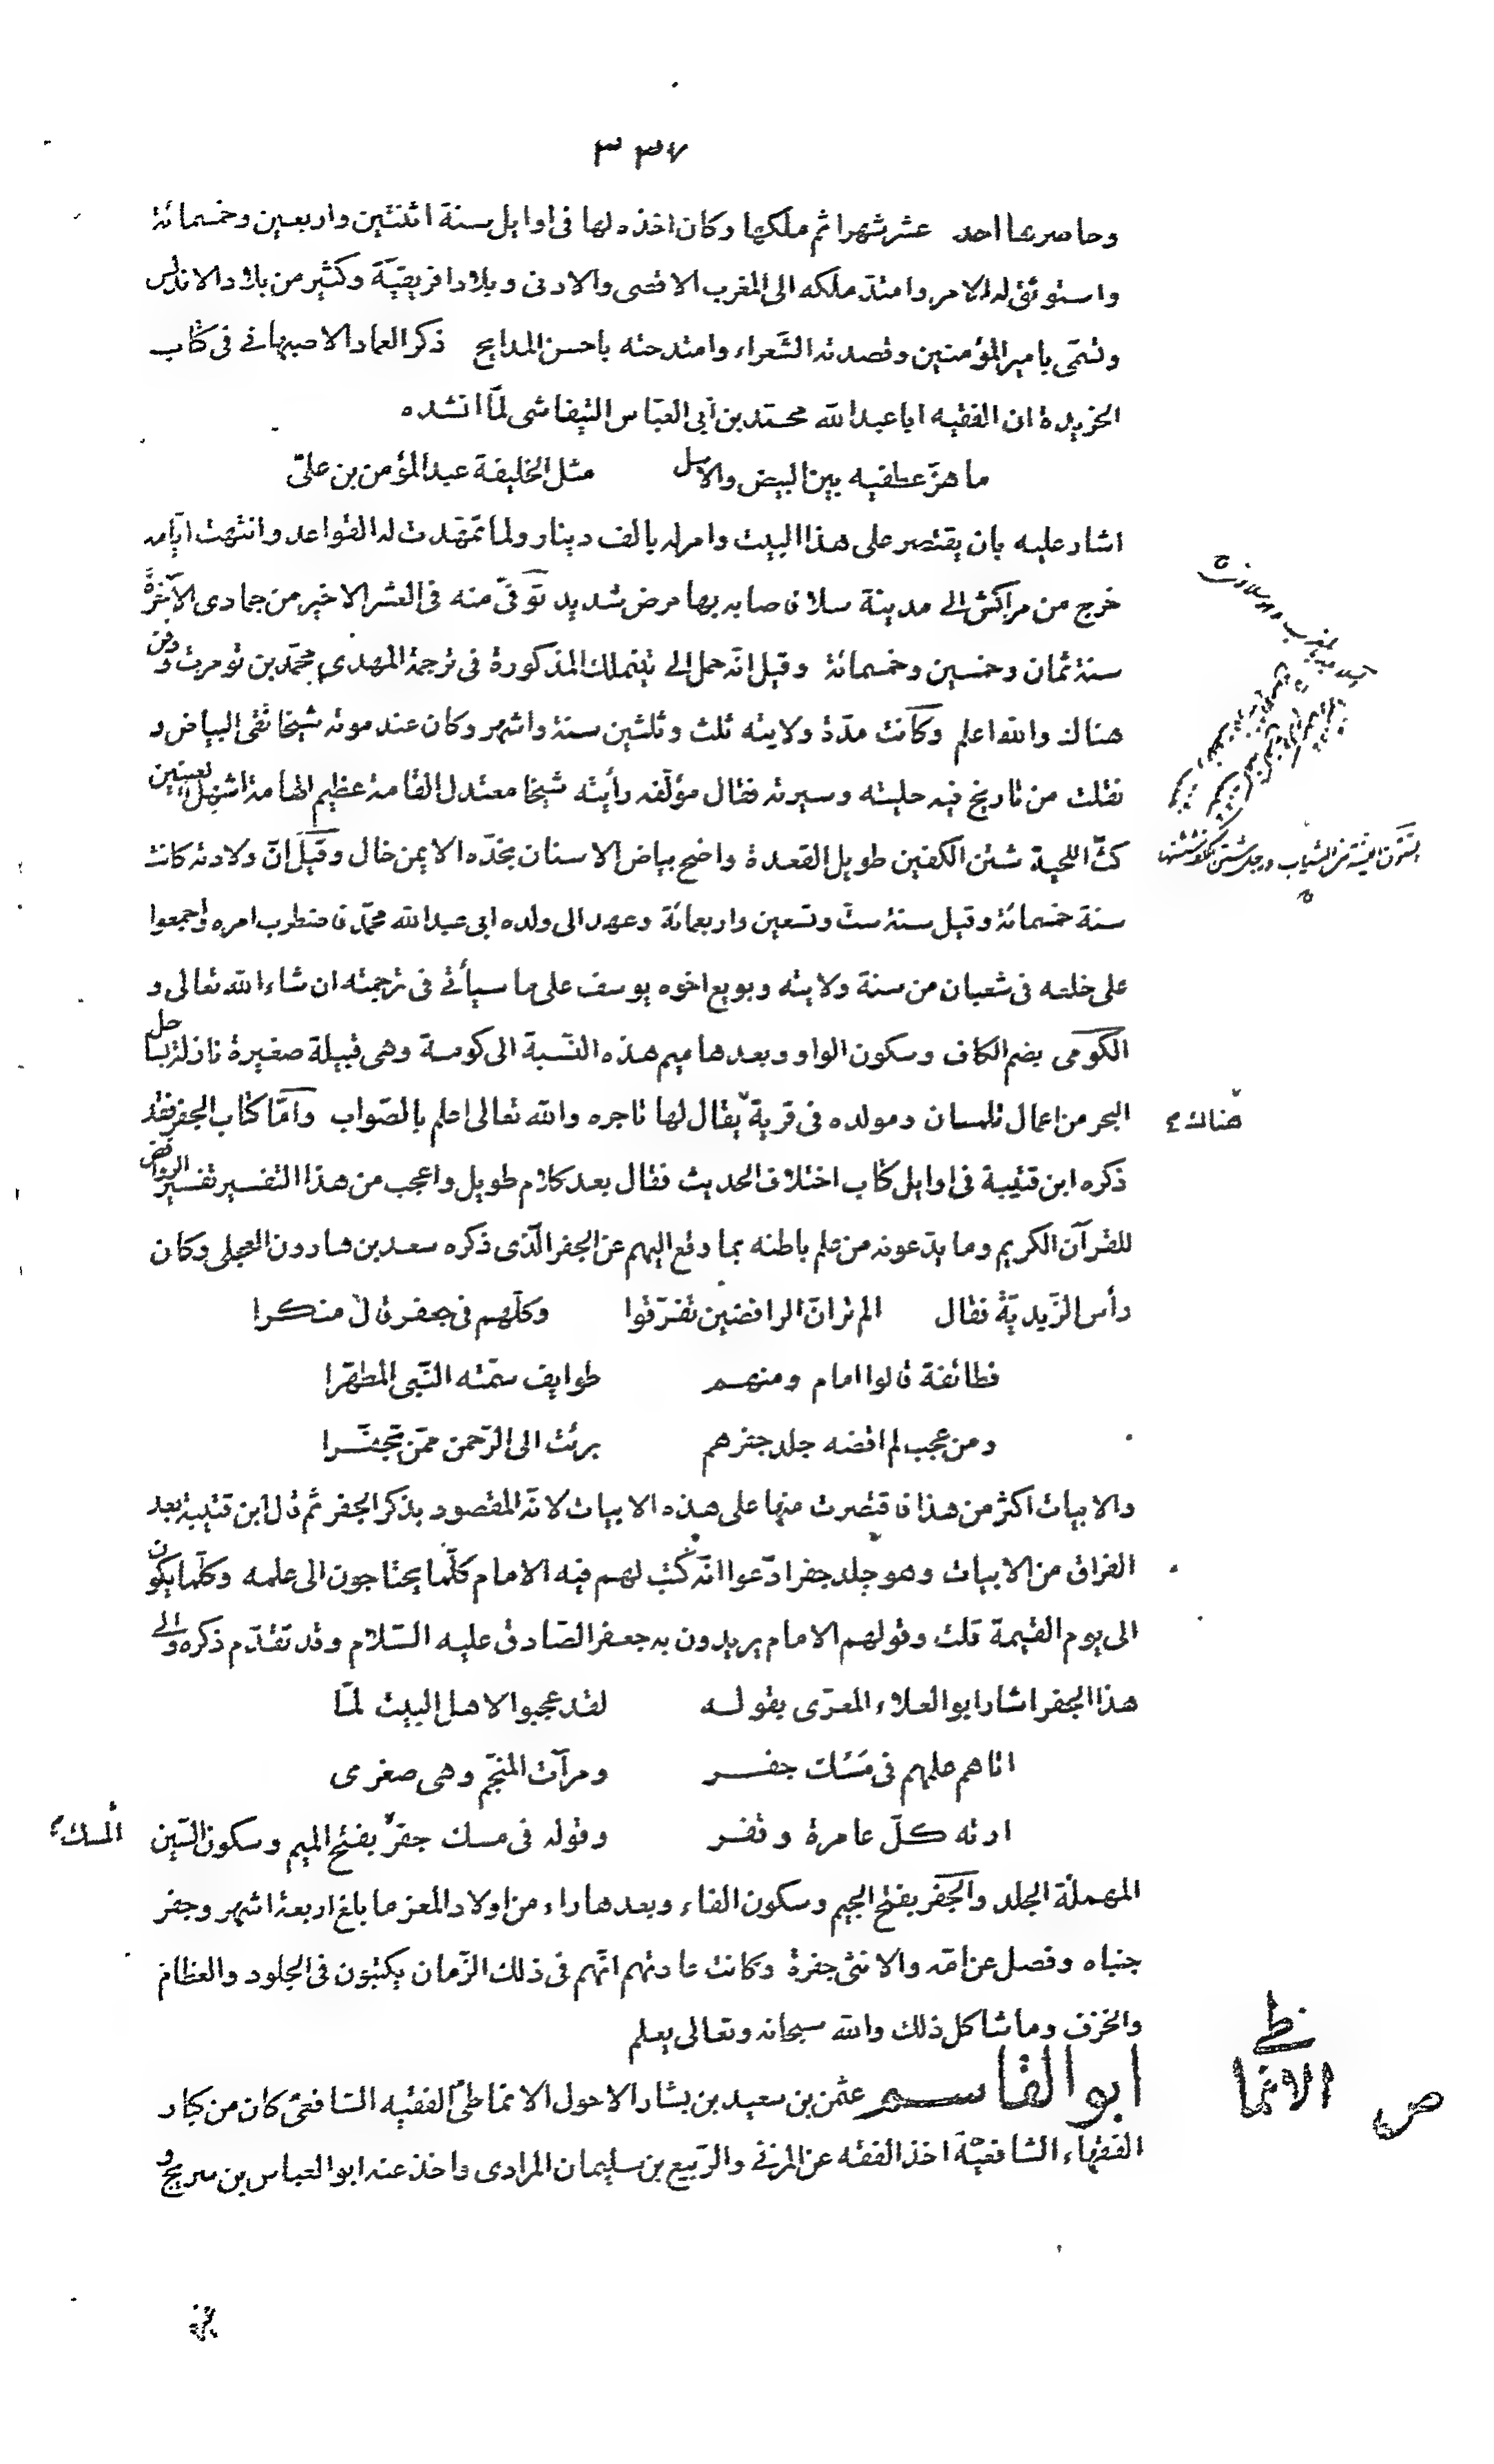 ٣٣٧
وحاصرها احد عشر شهرا ثم ملكها وكان اخذه لها فى اوايل سنة اثنتين واربعين وخمسمائة
واستوثق له الامر وامتد ملكه الى المغرب الاقصى والادنى وبلاد افريقيّة وكثير من بلاد الاندلس
وتسمّى بامير المؤمنين وقصدته الشّعراء وامتدحته باحسن المدايح ذكر العماد الاصبهانى فى كتاب
الخريدة ان الفقيه ابا عبد الله محمّد بن ابى العبّاس التيفاشى لمّا انشده
ما هزّ عطفيه بين البيض والاسل مثل الخليفة عبد المؤمن بن علىّ
اشار عليه بان يقتصر على هذا البيت وامر له بالف دينار ولما تمهّدت له القواعد وانتهت ايّامه
خرج من مراكش الى مدينة سلا فاصابه بها مرض شديد توفّى منه فى العشر الاخير من جمادى الآخرة
سنة ثمان وخمسين وخمسمائة وقيل انّه حمل الى تينملل المذكورة فى ترجمة المهدى محمّد بن تومرت ودفن
هناك والله اعلم وكانت مدّة ولايته ثلث وثلثين سنة واشهر وكان عند موته شيخا نقى البياض و
نقلت من تاريخ فيه حليته وسيرته فقال مؤلّفه رأيته شيخا معتدل القامة عظيم الهامة اشهل العينين
كثّ اللحية شثن الكفين طويل القعدة واضح بياض الاسنان بخدّه الايمن خال وقيل انّ ولادته كانت
سنة خمسمائة وقيل سنة ستّ وتسعين واربعمائة وعهد الى ولده ابى عبد الله محمّد فاضطرب امره واجمعوا
على خلعه فى شعبان من سنة ولايته وبويع اخوه يوسف على ما سيأتى فى ترجمته ان شاء الله تعالى و
الكومى بضم الكاف وسكون الواو وبعدها ميم هذه النّسبة الى كومية وهى قبيلة صغيرة نازلة بساحل
البحر من اعمال تلمسان ومولده فى قرية يقال لها تاجره والله تعالى اعلم بالصّواب وامّا كتاب الجفر فقد
هناك
ذكره ابن قتيبة فى اوايل كتاب اختلاف الحديث فقال بعد كلام طويل واعجب من هذا التفسير تفسير الروافض
للقرآن الكريم وما يدّعونه من علم باطنه بما وقع اليهم عن الجفر الّذى ذكره سعد بن هارون العجلى وكان
رأس الزّيديّة فقال الم تر انّ الرافضين تفرّقوا وكلّهم فى جعفر قال منكرا
فطائفة قالوا امام ومنهم طوايف سمّته النّبى المطهّرا
ومن عجب لم اقضه جلد جفرهم برئت الى الرّحمن ممّن تجفّرا
والابيات اكثر من هذا فاقتصرت منها على هذه الابيات لانّه المقصود بذكر الجفر ثم قال ابن قتيبة بعد
الفراق من الابيات وهو جلد جفر ادّعوا انّه كتب لهم فيه الامام كلّما يحتاجون الى علمه وكلّما يكون
الى يوم القيمة قلت وقولهم الامام يريدون به جعفر الصّادق عليه السّلام وقد تقدّم ذكره والى
هذا الجفر اشار ابو العلاء المعرّى بقوله لقد عجبوا لاهل البيت لمّا
اتاهم علمهم فى مَسْك جفر ومرآت المنجّم وهى صغرى
ارته كلّ عامرة وقفر وقوله فى مسك جفر بفتح الميم وسكون السّين
المسك
المهملة الجلد والجفر بفتح الجيم وسكون الفاء وبعدها راء من اولاد المعز ما بلغ اربعة اشهر وجفر
جنباه وفصل عن امّه والانثى جفرة وكانت عادتهم انّهم فى ذلك الزّمان يكتبون فى الجلود والعظام
والخزف وما شاكل ذلك والله سبحانه وتعالى يعلم
ابو القاسم عثمن بن سعيد بن بشار الاحول الانماطىّ الفقيه الشافعىّ كان من كبار
الانماطى
ص
الفقهاء الشافعيّة اخذ الفقه عن المزنى والرّبيع بن سليمان المرادى واخذ عنه ابو العباس بن سريج و